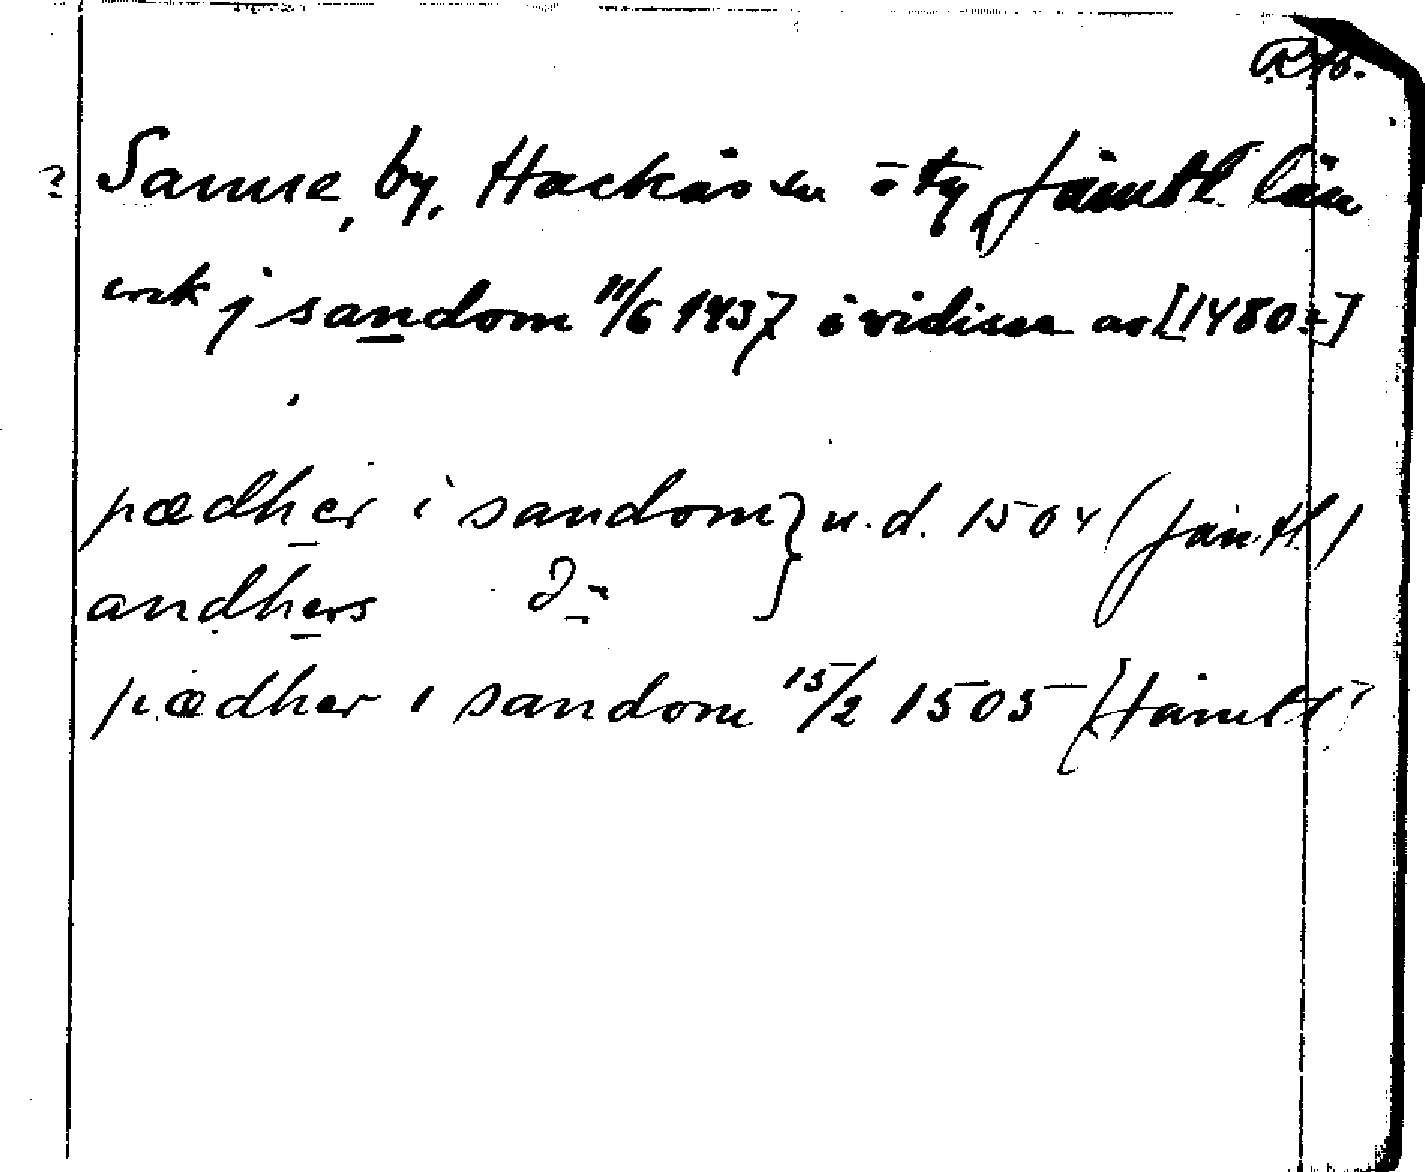 ? Sanne, by, Hackås sn o ty, Jämtl län
j sandom 11/6 1437 i vidisse av [1480=]
pædher i sandom } u.d. 1504 (Jämtl)
andhers Do
pædher i sandom 15/2 1505 (Jämtl)